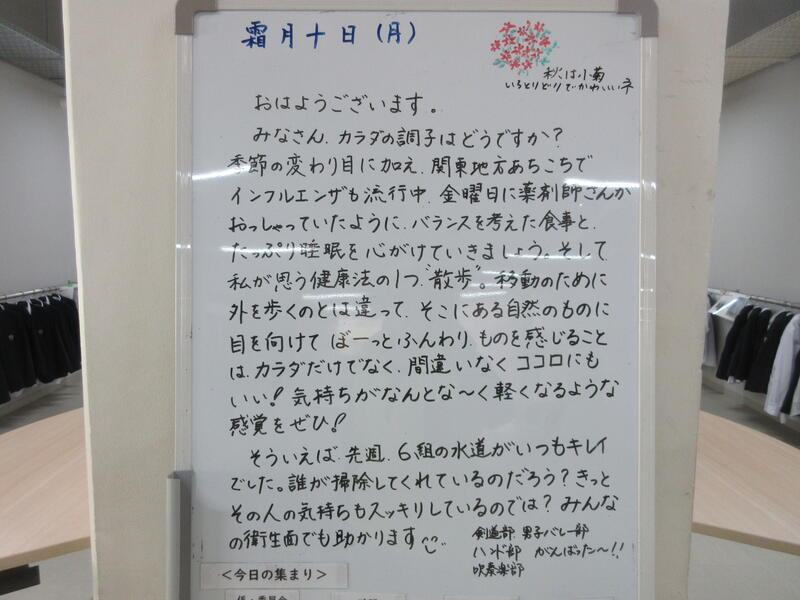 霜月十日(月)
秋は小菊
いろとりどりでかわいいネ
おはようございます。
みなさん、カラダの調子はどうですか?
季節の変わり目に加え、関東地方あちこちで
インフルエンザも流行中。金曜日に薬剤師さんが
おっしゃっていたように、バランスを考えた食事と、
たっぷり睡眠を心がけていきましょう。そして
私が思う健康法の1つ“散歩”。移動のために
外を歩くのとは違って、そこにある自然のものに
目を向けて ぼーっとふんわり、ものを感じること
は、カラダだけでなく、間違いなくココロにも
いい!気持ちがなんとな〜く軽くなるような
感覚をぜひ!
そういえば、先週、6組の水道がいつもキレイ
でした。誰が掃除してくれているのだろう?きっと
その人の気持ちもスッキリしているのでは?みんな
の衛生面でも助かります
剣道部 男子バレー部
ハンド部 がんばった〜!!
吹奏楽部
<今日の集まり>